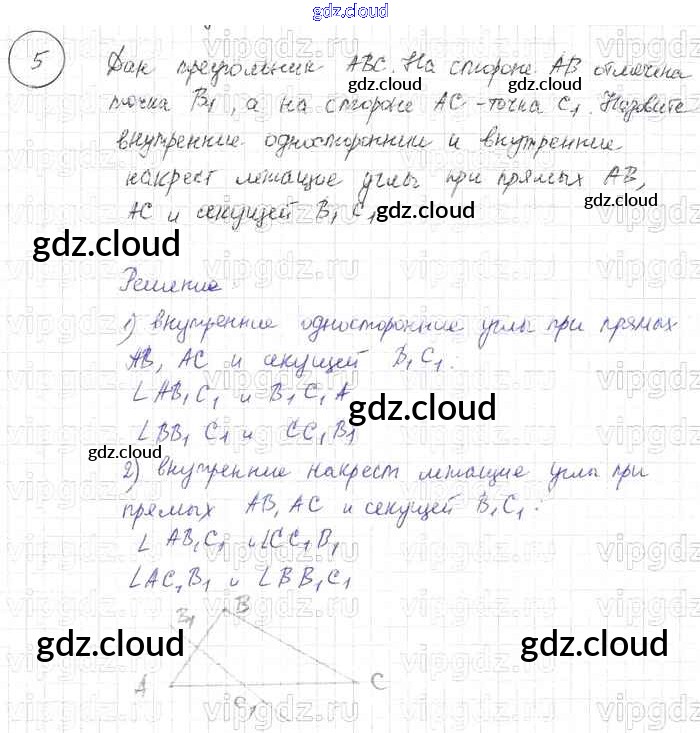 gdz.cloud
5 Дан треугольник ABC. На стороне AB отмечена
точка B₁, а на стороне AC - точка C₁. Назовите
внутренние односторонние и внутренние
накрест лежащие углы при прямых AB,
AC и секущей B₁ C₁
gdz.cloud
gdz.cloud
gdz.cloud
gdz.cloud
gdz.cloud
Решение
1) внутренние односторонние углы при прямых
AB, AC и секущей B₁C₁:
∠AB₁C₁ и B₁C₁A
gdz.cloud
∠BB₁C₁ и CC₁B₁
gdz.cloud
2) внутренние накрест лежащие углы при
прямых AB, AC и секущей B₁C₁:
∠AB₁C₁ и ∠CC₁B₁
∠AC₁B₁ и ∠BB₁C₁
B₁ B
gdz.cloud
gdz.cloud
A C
C₁